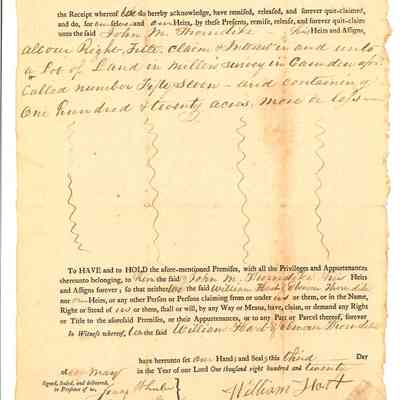 the Receipt whereof we do hereby acknowledge, have remised, released, and forever quit-claimed,
and do, for ourselves and our Heirs, by these Presents, remise, release, and forever quit-claim
unto the said John M. Thorndike — his Heirs and Assigns,
all our Right, Title, claim & Interest in and unto
a Lot of Land in Miller's survey in Camden
Called number Fifty Seven — and containing
One hundred & twenty acres, more or less —
To HAVE and to HOLD the afore-mentioned Premises, with all the Privileges and Appurtenances
thereunto belonging, to him the said John M. Thorndike his Heirs
and Assigns forever; so that neither we the said William Hart & Thorndike
nor our Heirs, or any other Person or Persons claiming from or under us or them, or in the Name,
Right or Stead of us or them, shall or will, by any Way or Means, have, claim, or demand any Right
or Title to the aforesaid Premises, or their Appurtenances, or to any Part or Parcel thereof, forever
In Witness whereof, We the said William Hart & Thorndike
have hereunto set our Hand and Seal this third — Day
of May in the Year of our Lord One thousand eight hundred and twenty
Signed, Sealed, and delivered,
in Presence of us,
William Hart